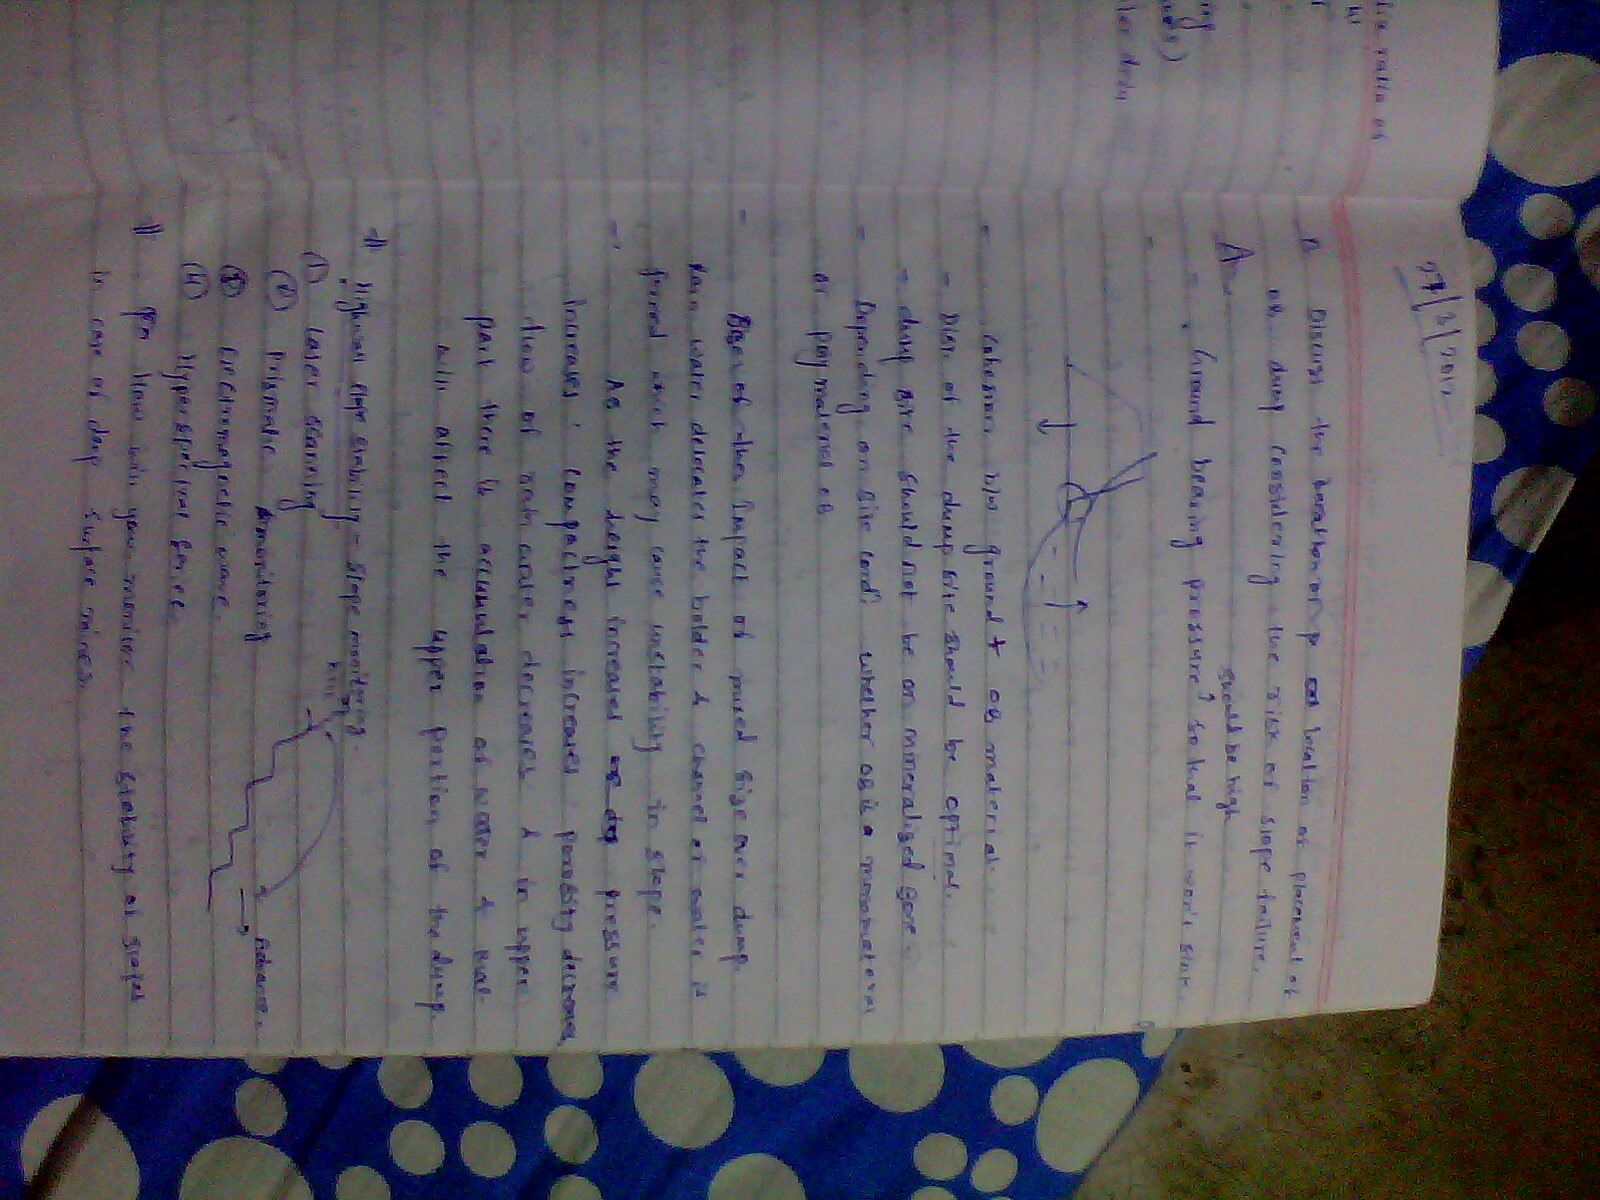 27/3/2012
Discuss the location or placement of
ob dump considering the risk of slope failure.
should be high
A- - Ground bearing pressure so that it won't sink.
-
- Cohesion b/w ground & OB material.
- Dist of the dump site should be optimal.
- dump site should not be on mineralized zone.
- Depending on site condn whether OB is a monomaterial
or polymaterial OB
- impact of mixed size over dump.
Rain water detoriates the bolder & channel of water is
formed which may cause unstability in slope.
- As the height increases pressure
increases, compactness increases porosity decreases
flow of water decreases & in upper
part there is accumulation of water &
will affect the upper portion of the dump.
=> Highwall slope stability - slope monitoring.
1) Laser scanning
2) Prismatic monitoring
3) Electromagnetic wave.
4) Hyperspectral
Advance.
=> Q How will you monitor the stability of slopes
in case of deep surface mines.